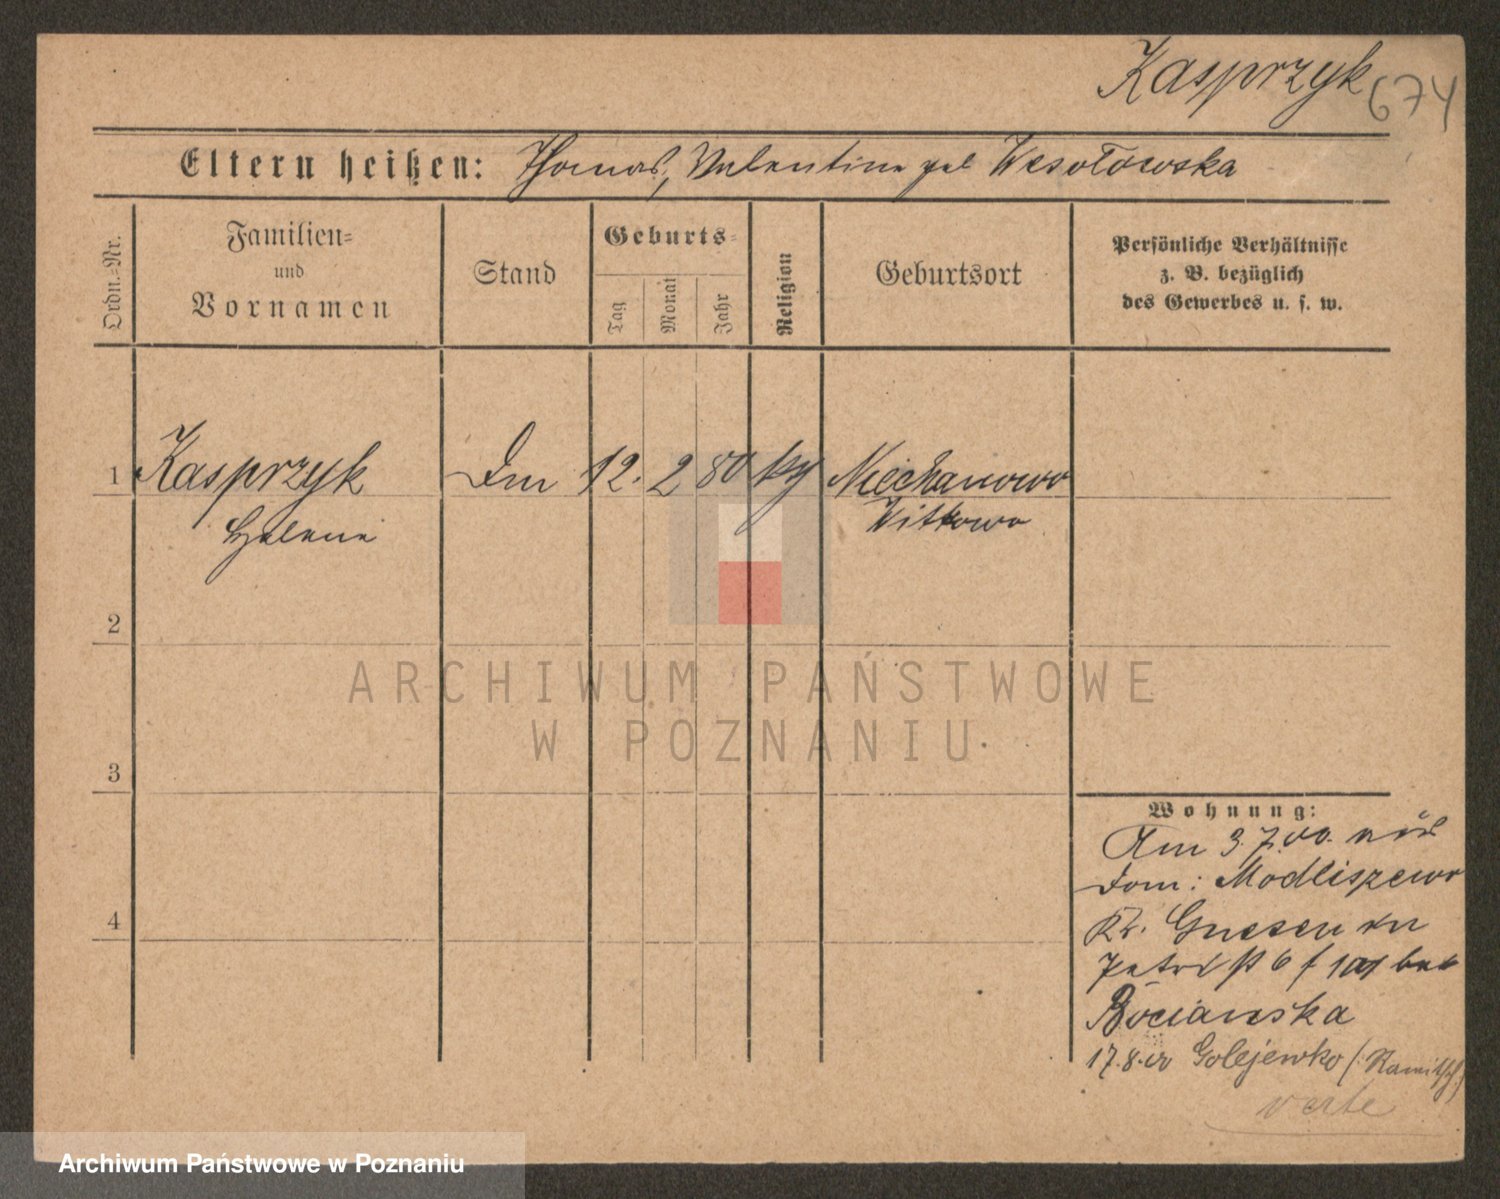 Kasprzyk 674
Eltern heißen: Thomas, Valentine geb Wesołowska
Ordn.=Nr.
Familien=
und
Vornamen
Stand
Geburts=
Tag
Monat
Jahr
Religion
Geburtsort
Persönliche Verhältnisse
z. B. bezüglich
des Gewerbes u. s. w.
1 Kasprzyk 12. 2 80 Niechanowo
Helene Witkowo
2
3
4
ARCHIWUM PAŃSTWOWE
W POZNANIU
Wohnung:
Am 3. 7. 00.
Dom: Modliszewo
Kr. Gnesen
Petri 6
Bocianska
17.8. Golejewko
verte
Archiwum Państwowe w Poznaniu